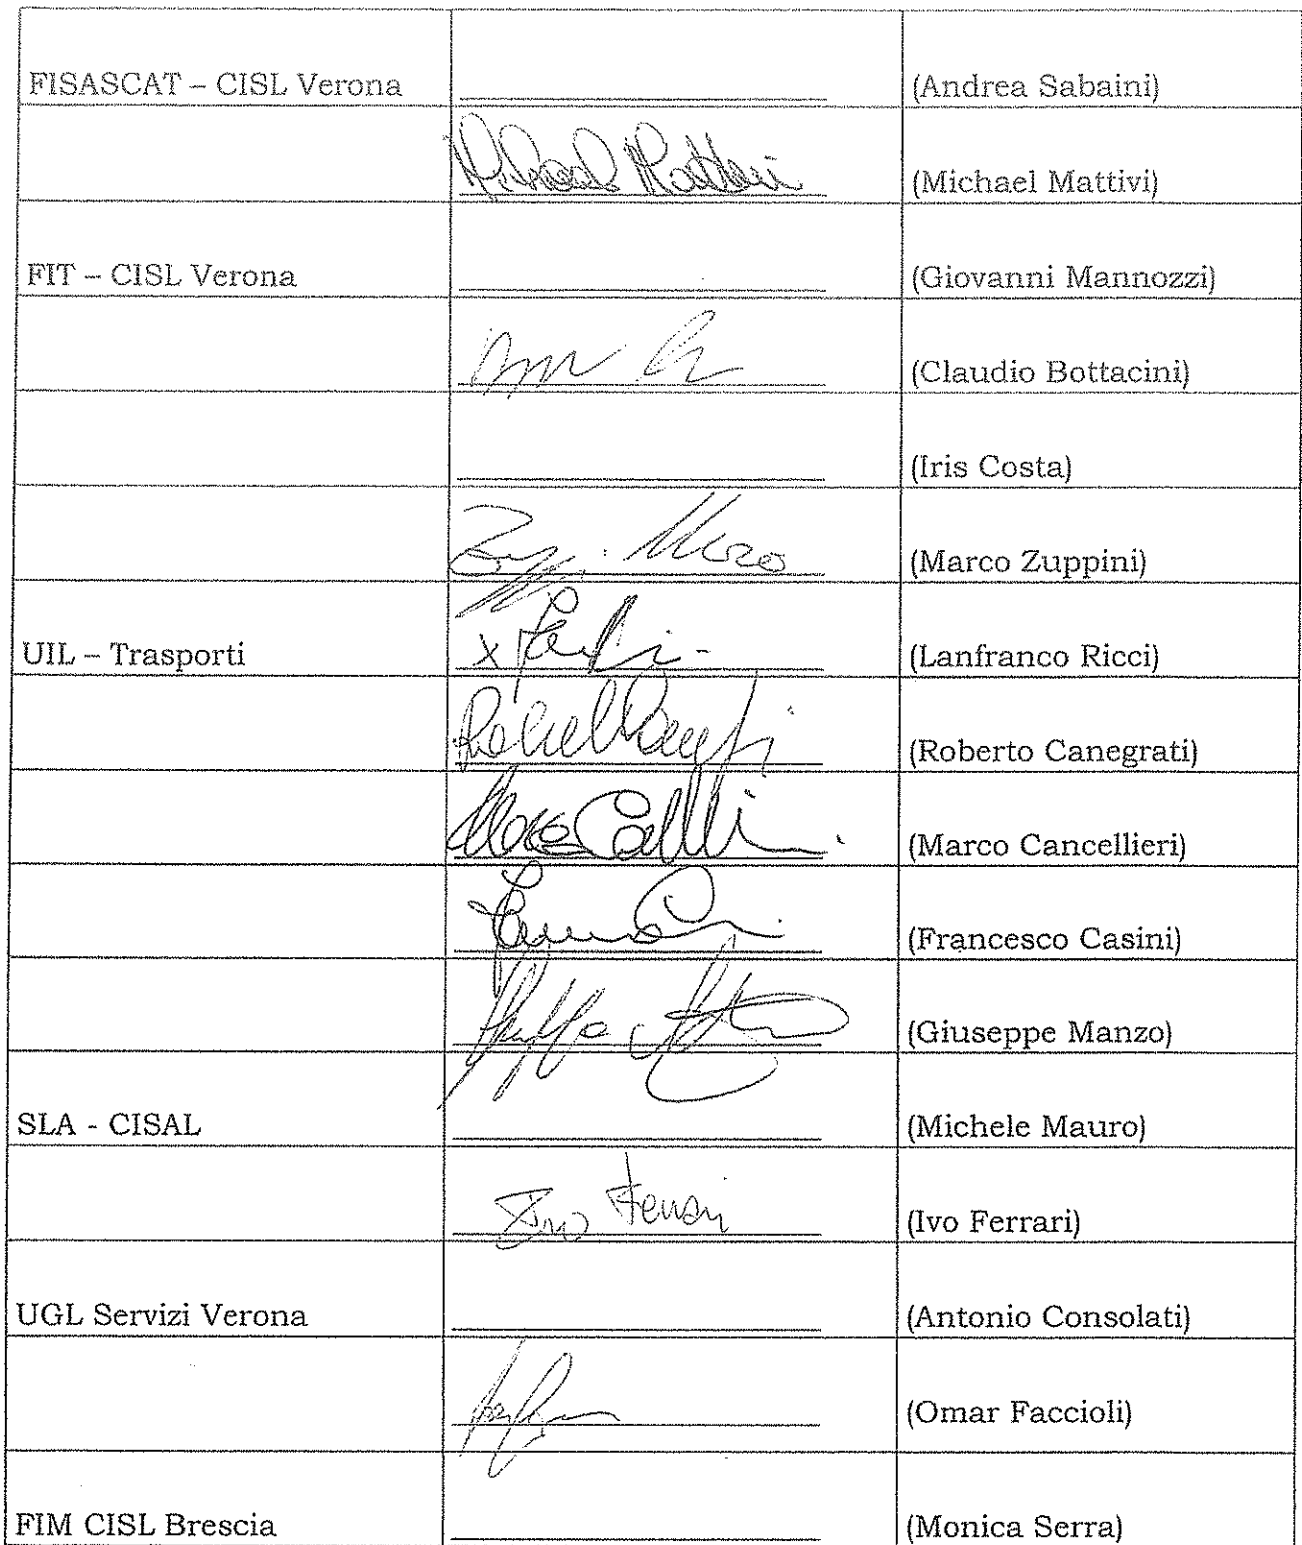 FISASCAT – CISL Verona (Andrea Sabaini)
Michael Mattivi (Michael Mattivi)
FIT – CISL Verona (Giovanni Mannozzi)
(Claudio Bottacini)
(Iris Costa)
(Marco Zuppini)
UIL – Trasporti x (Lanfranco Ricci)
(Roberto Canegrati)
(Marco Cancellieri)
(Francesco Casini)
(Giuseppe Manzo)
SLA - CISAL (Michele Mauro)
Ivo Ferrari (Ivo Ferrari)
UGL Servizi Verona (Antonio Consolati)
(Omar Faccioli)
FIM CISL Brescia (Monica Serra)